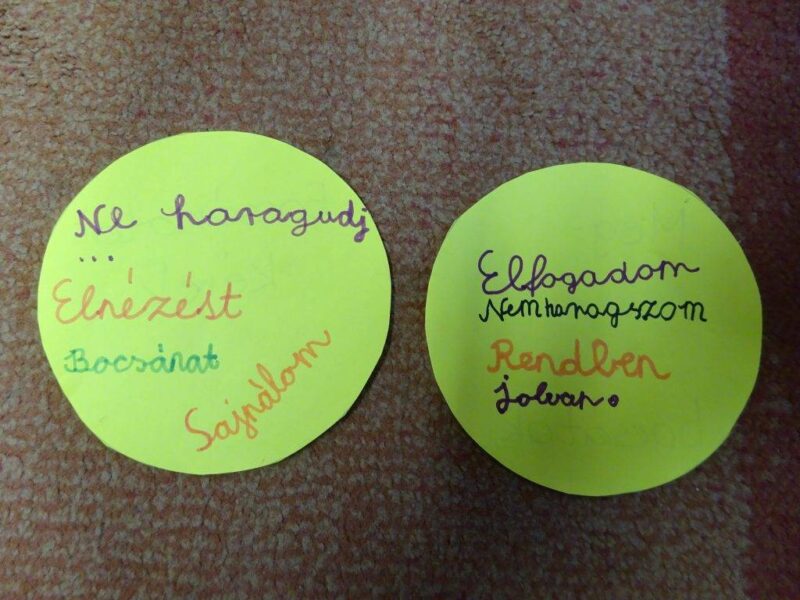 Ne haragudj
...
Elnézést
Bocsánat
Sajnálom
Elfogadom
Nem haragszom
Rendben
jolvan.